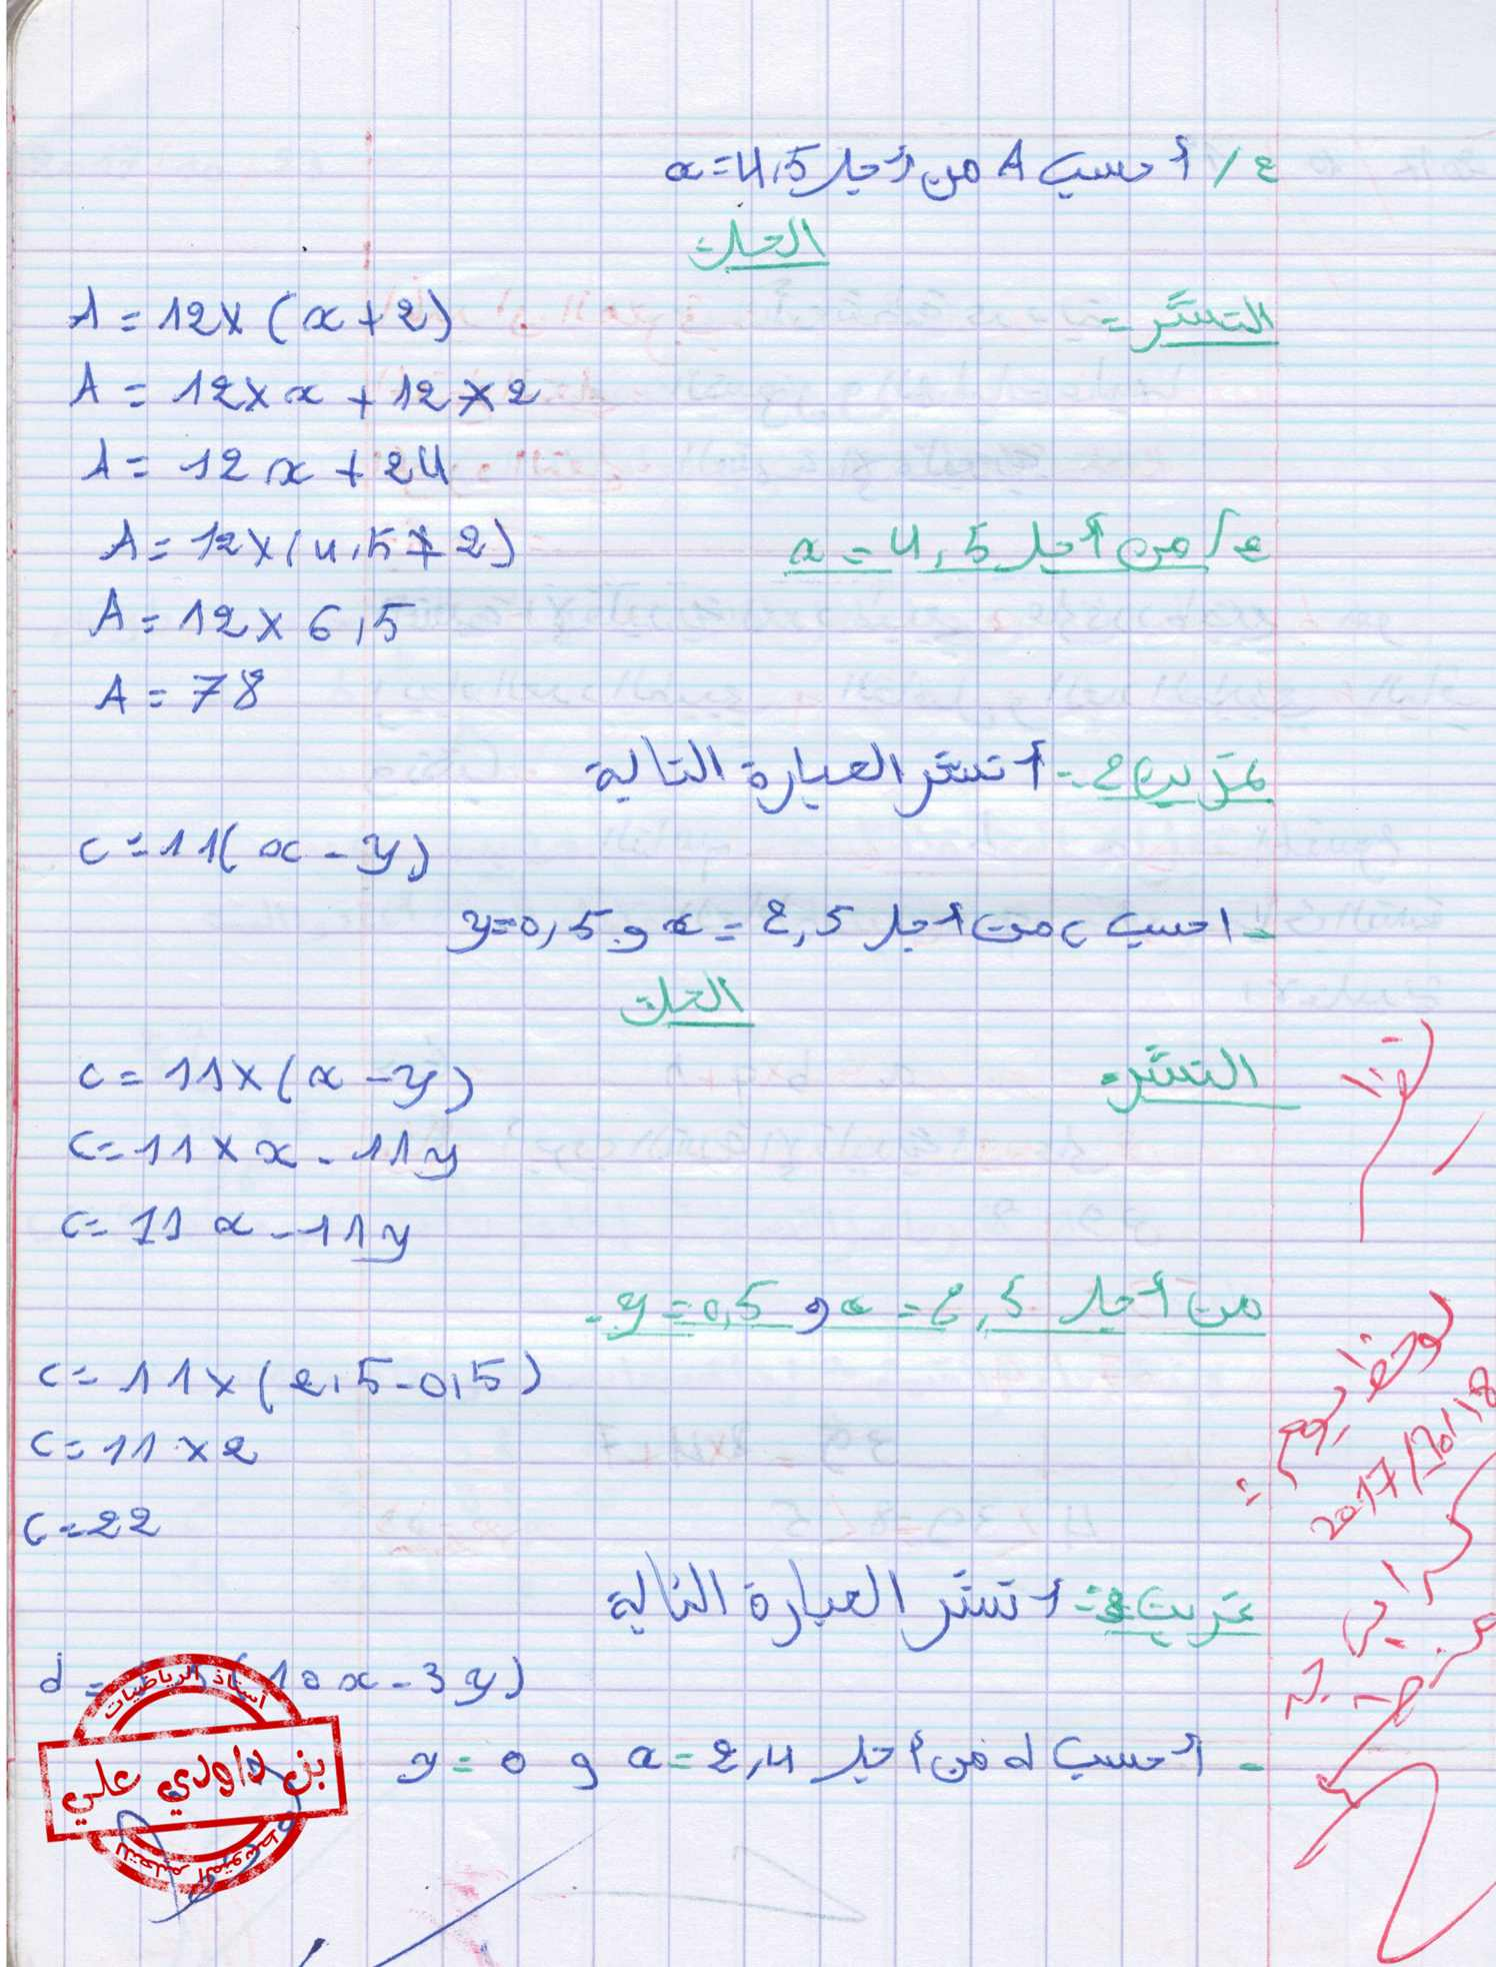 2/ أحسب A من أجل x=4,5
الحل
النشر:
A = 12x (x+2)
A = 12xx + 12x2
A = 12x + 24
2/ من أجل x = 4,5
A = 12x(4,5+2)
A = 12x 6,5
A = 78
تمرين 2:- أنشر العبارة التالية
c = 11(x - y)
- احسب c من أجل x = 2,5 و y=0,5
الحل
النشر:
c = 11x (x - y)
c = 11 x x - 11y
c = 11 x - 11y
من أجل x = 2,5 و y=0,5 -
c = 11x (2,5-0,5)
c = 11 x 2
c = 22
تمرين 3:- أنشر العبارة التالية
d = (10x - 3y)
- أحسب d من أجل x = 2,4 و y = 0
لوحظ يوم:
2017/10/18
أستاذ الرياضيات
بن داودي علي
للتعليم المتوسط